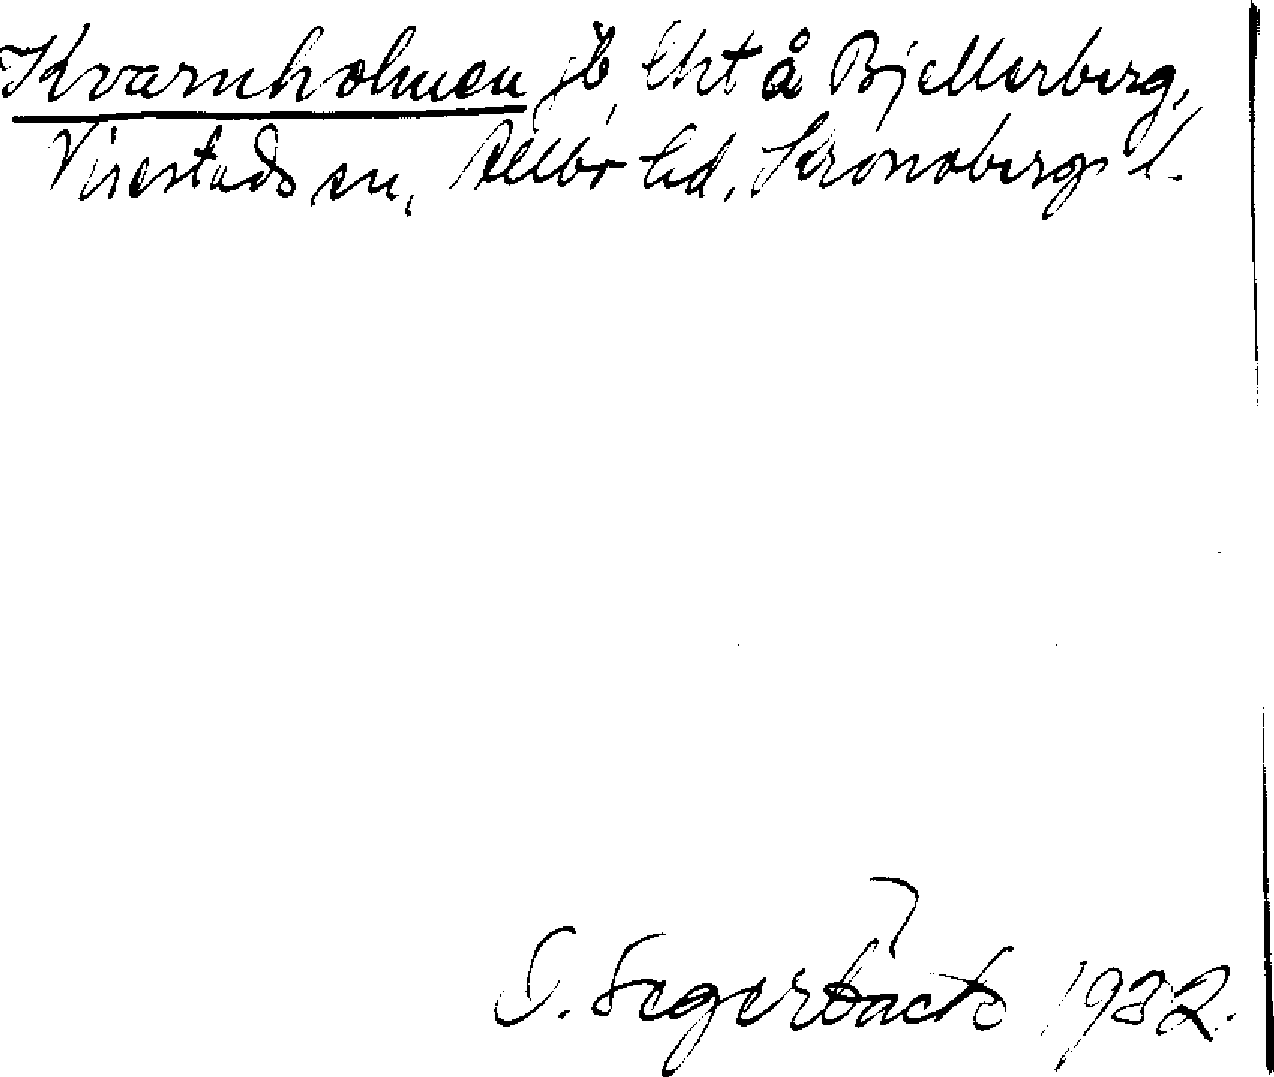 Kvarnholmen jb, Ekt å Bjellerberg,
Virestads sn, Allbo hd, Kronobergs l.
S. Segerbäck 1932.